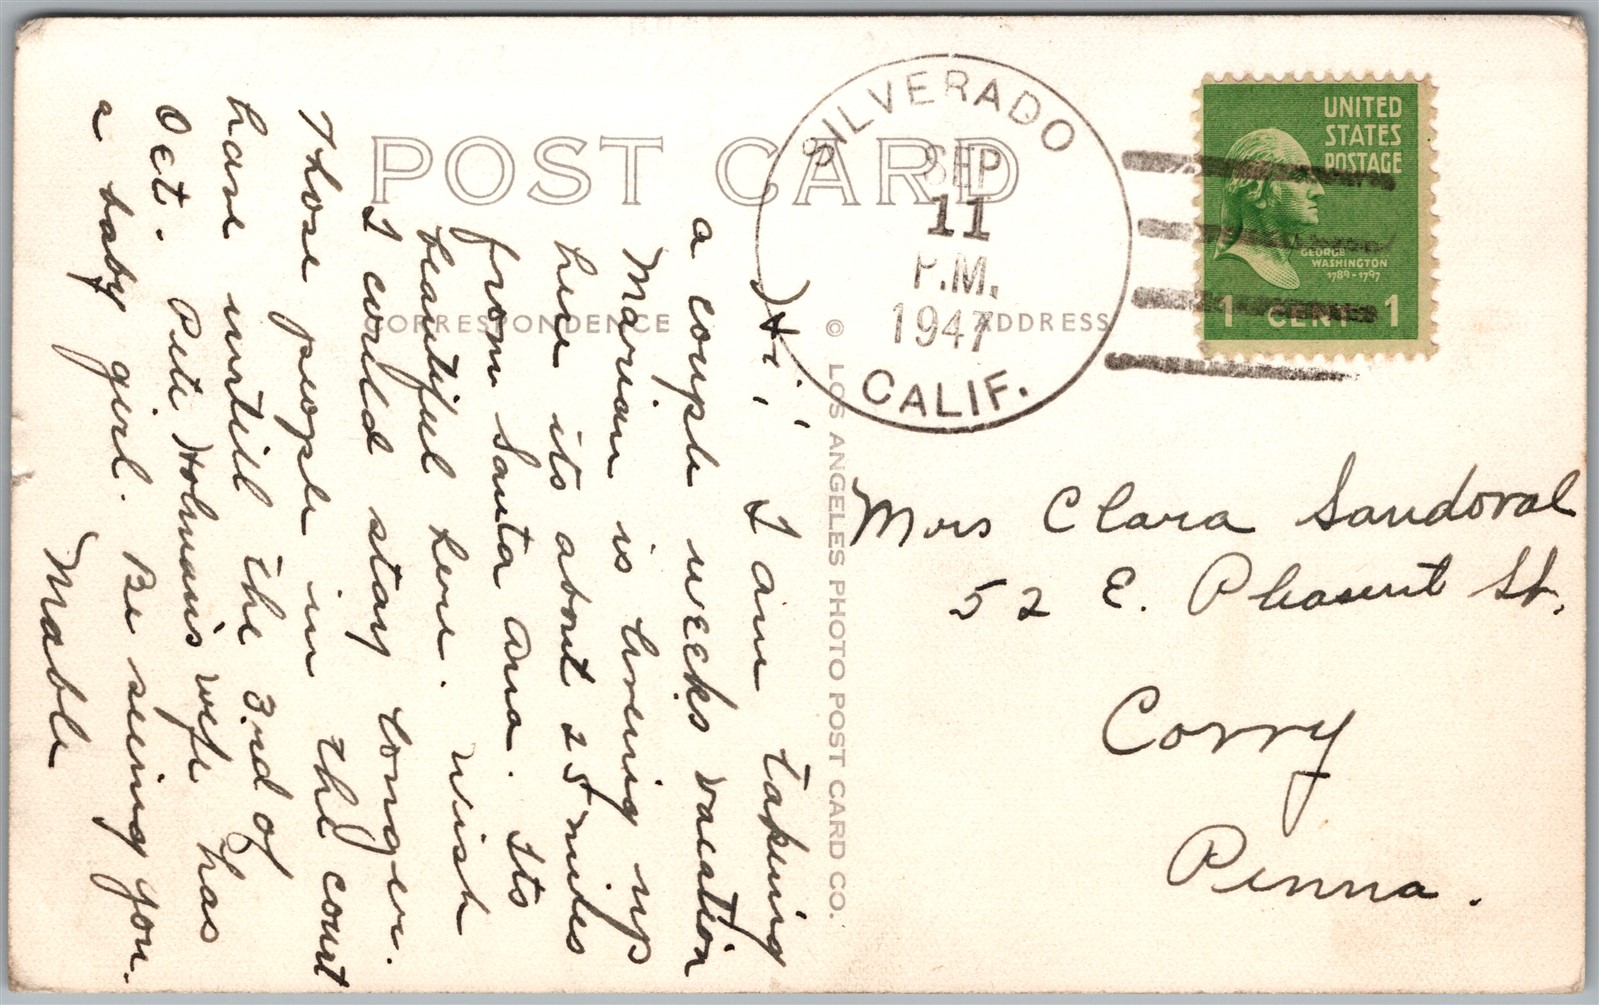 POST CARD
CORRESPONDENCE
ADDRESS
© LOS ANGELES PHOTO POST CARD CO.
SILVERADO
SEP
11
P.M.
1947
CALIF.
UNITED
STATES
POSTAGE
GEORGE
WASHINGTON
1789-1797
1 CENT 1
Hi; I am taking
a couple weeks vacation
Marian is living up
here its about 25 miles
from Santa Ana. Its
beautiful here. Wish
I could stay longer.
Those people in the court
have untill the 3rd of
Oct. Pete Holman's wife has
a baby girl. Be seeing you.
Mable
Mrs Clara Sandoval
52 E. Pleasent St.
Corry
Penna.